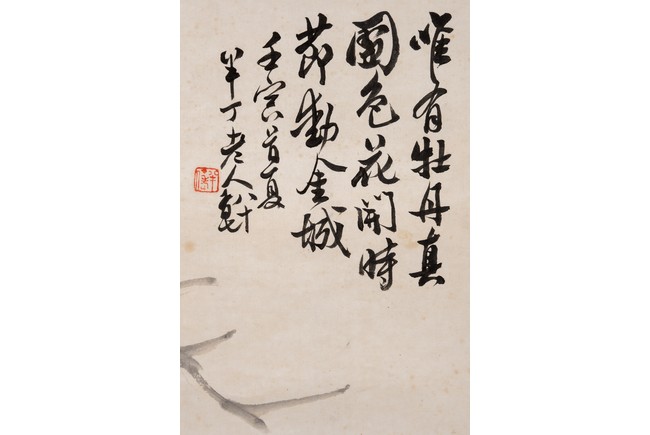 唯有牡丹真
國色花開時
節動金城
壬寅首夏
半丁老人八十